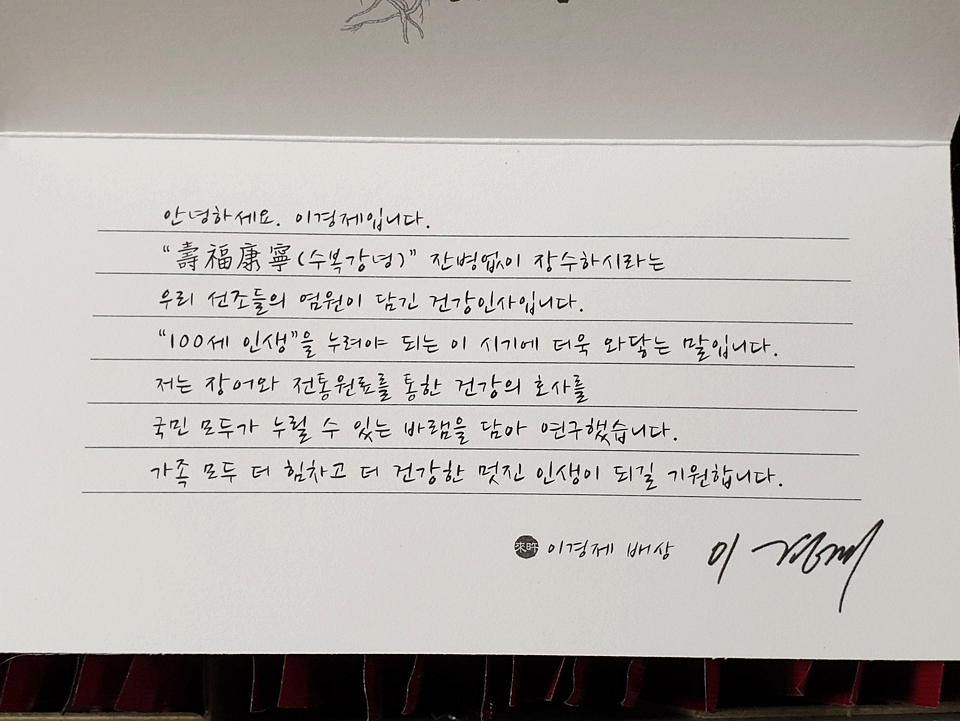 안녕하세요. 이경제입니다.
“壽福康寧(수복강녕)” 잔병없이 장수하시라는
우리 선조들의 염원이 담긴 건강인사입니다.
“100세 인생”을 누려야 되는 이 시기에 더욱 와닿는 말입니다.
저는 장어와 전통원료를 통한 건강의 호사를
국민 모두가 누릴 수 있는 바램을 담아 연구했습니다.
가족 모두 더 힘차고 더 건강한 멋진 인생이 되길 기원합니다.
이경제 배상 이경제